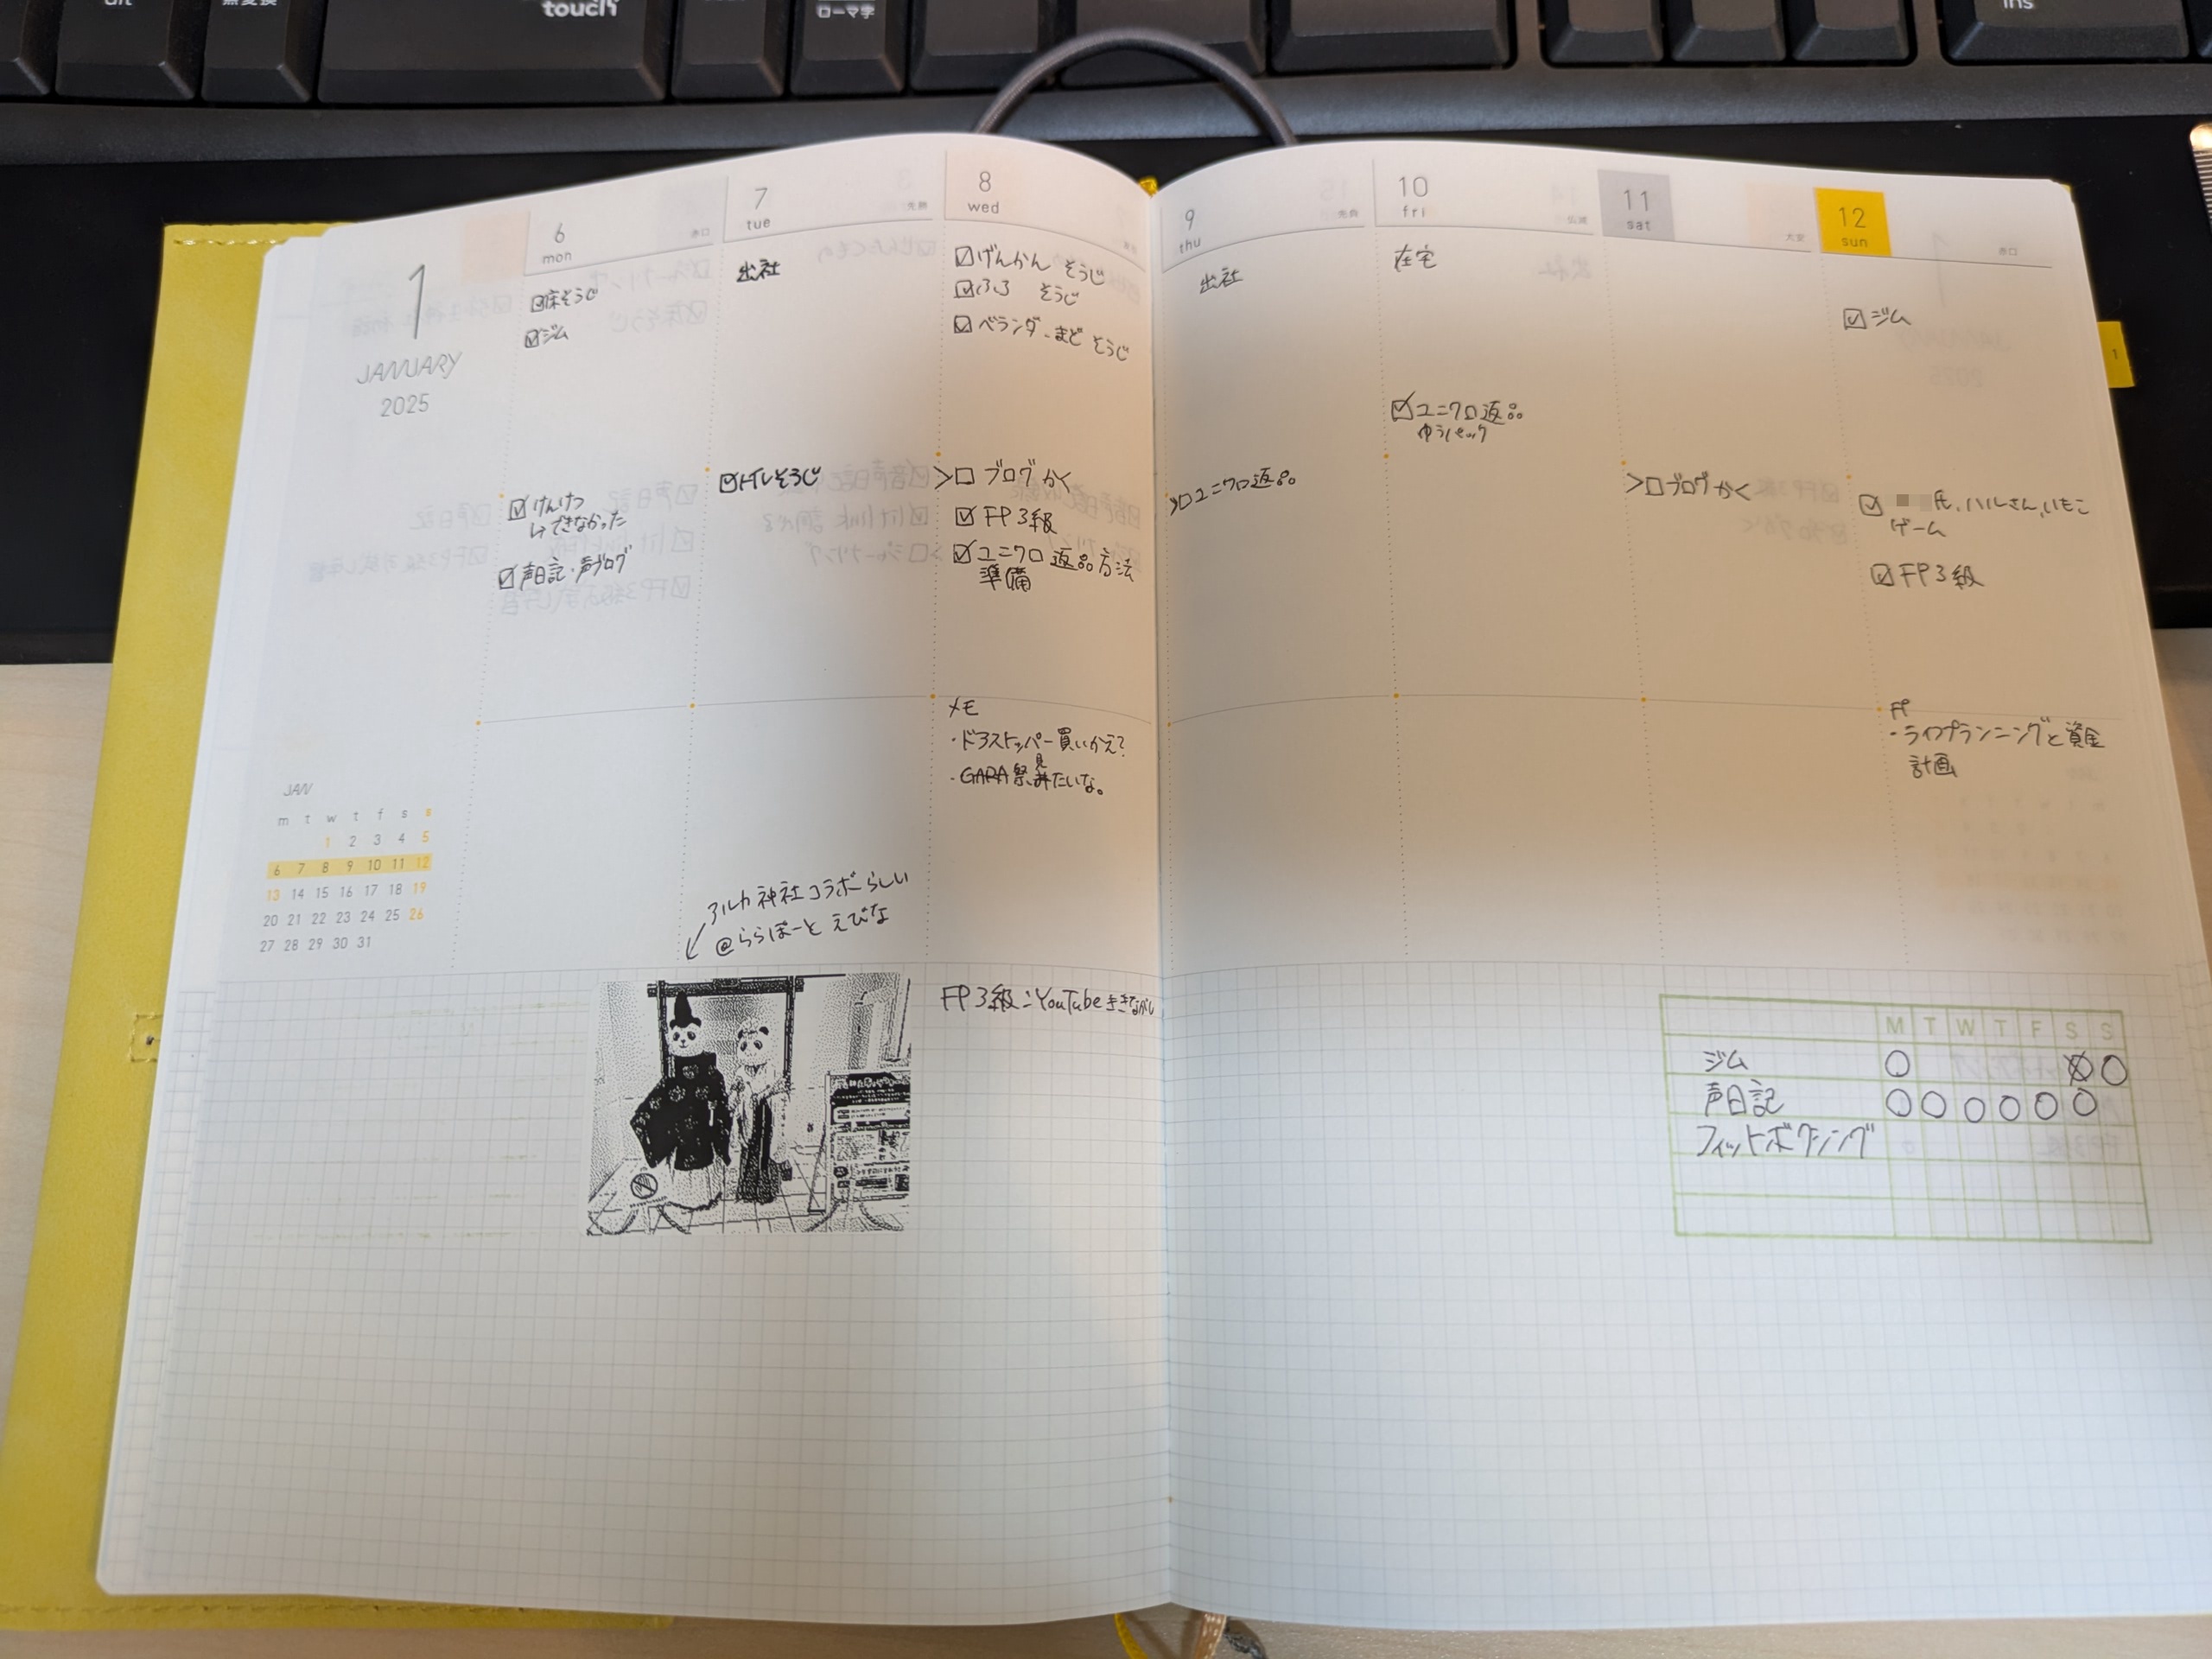 touch
ローマ字
ins
1
JANUARY
2025
6
mon
赤口
床そうじ
ジム
けんけつ
↳できなかった
声日記・声ブログ
7
tue
先勝
出社
トイレそうじ
8
wed
げんかん そうじ
ふろ そうじ
ベランダ・まど そうじ
>□ ブログかく
FP3級
ユニクロ返品方法
準備
メモ
・ドアストッパー買いかえ?
・GARA祭見たいな。
9
thu
先負
出社
>□ユニクロ返品
10
fri
仏滅
在宅
ユニクロ返品
ゆうパック
11
sat
大安
>□ブログかく
12
sun
赤口
ジム
氏、ハルさん、いもこ
ゲーム
FP3級
FP
・ライフプランニングと資金
計画
1
JAN
m t w t f s s
1 2 3 4 5
6 7 8 9 10 11 12
13 14 15 16 17 18 19
20 21 22 23 24 25 26
27 28 29 30 31
アルカ神社コラボらしい
@ららぽーと えびな
FP3級:YouTubeききながし
M T W T F S S
ジム
声日記
フィットボクシング